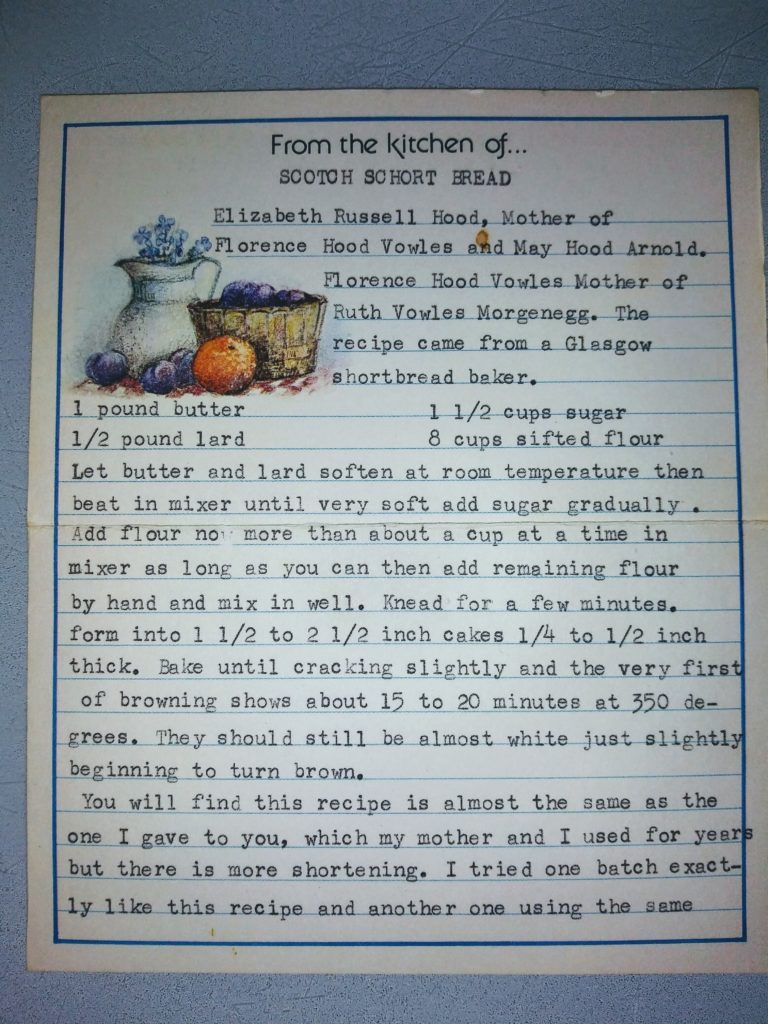 From the kitchen of...
SCOTCH SCHORT BREAD
Elizabeth Russell Hood, Mother of
Florence Hood Vowles and May Hood Arnold.
Florence Hood Vowles Mother of
Ruth Vowles Morgenegg. The
recipe came from a Glasgow
shortbread baker.
1 pound butter 1 1/2 cups sugar
1/2 pound lard 8 cups sifted flour
Let butter and lard soften at room temperature then
beat in mixer until very soft add sugar gradually .
Add flour no more than about a cup at a time in
mixer as long as you can then add remaining flour
by hand and mix in well. Knead for a few minutes.
form into 1 1/2 to 2 1/2 inch cakes 1/4 to 1/2 inch
thick. Bake until cracking slightly and the very first
of browning shows about 15 to 20 minutes at 350 de-
grees. They should still be almost white just slightly
beginning to turn brown.
You will find this recipe is almost the same as the
one I gave to you, which my mother and I used for years
but there is more shortening. I tried one batch exact-
ly like this recipe and another one using the same